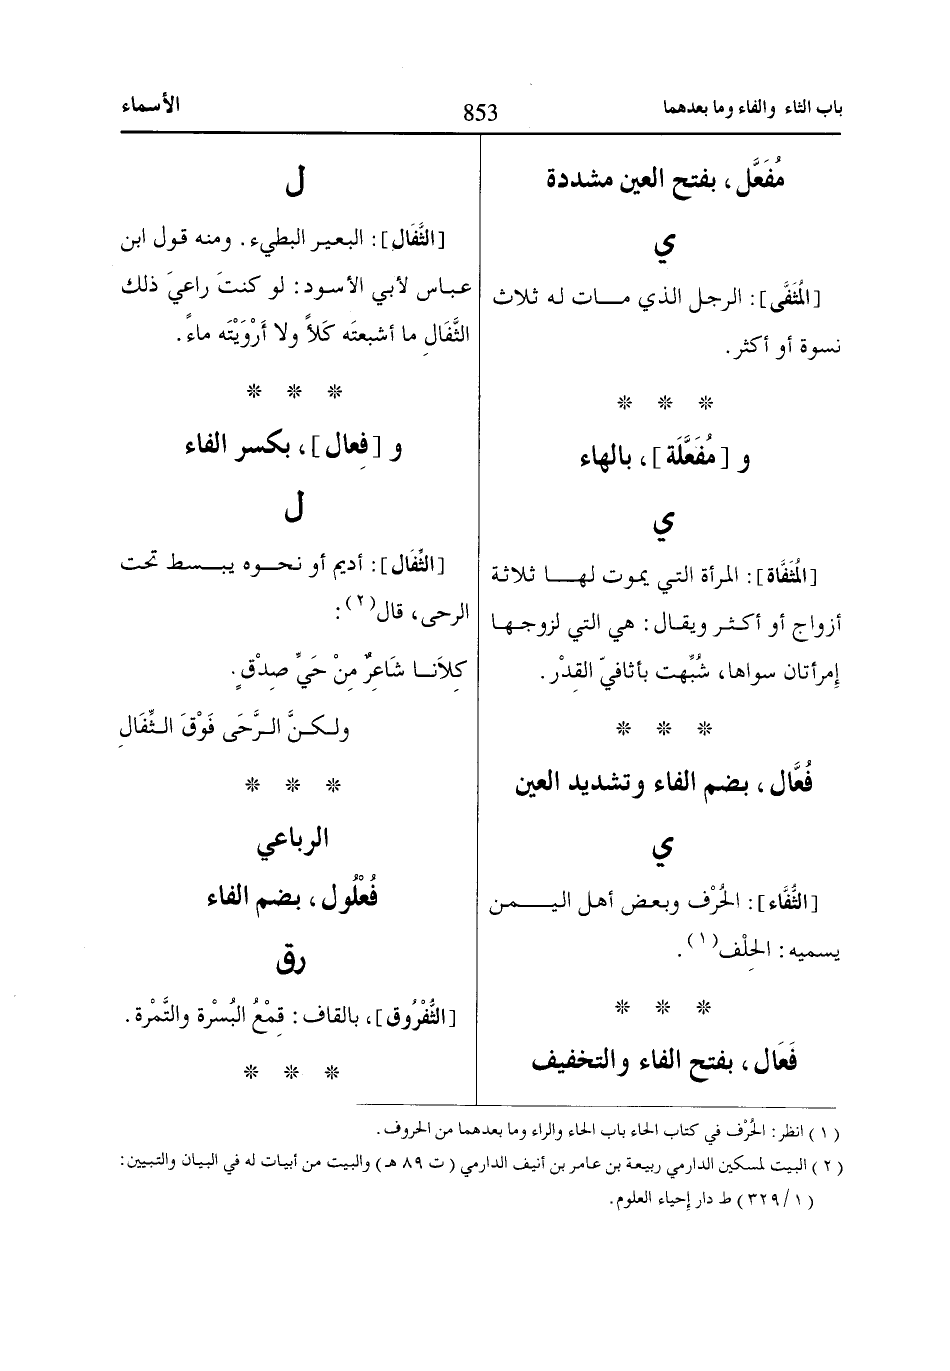 باب الثاء والفاء وما بعدهما
853
الأسماء
مُفَعَّل، بفتح العين مشددة
ي
[المُثَفَّى]: الرجل الذي مات له ثلاث
نسوة أو أكثر.
* * *
و [مُفَعَّلَة]، بالهاء
ي
[المُثَفَّاة]: المرأة التي يموت لها ثلاثة
أزواج أو أكثر ويقال: هي التي لزوجها
إمرأتان سواها، شُبِّهت بأثافيّ القِدْر.
* * *
فُعَّال، بضم الفاء وتشديد العين
ي
[الثُّفَّاء]: الحُرْف وبعض أهل اليمن
يسميه: الحلْف(١).
* * *
فَعَال، بفتح الفاء والتخفيف
ل
[الثَّفَال]: البعير البطيء. ومنه قول ابن
عباس لأبي الأسود: لو كنتَ راعيَ ذلك
الثَّفَالِ ما أشبعتَه كَلأً ولا أرْوَيْتَه ماءً.
* * *
و [فِعال]، بكسر الفاء
ل
[الثِّفَال]: أديم أو نحوه يبسط تحت
الرحى، قال(٢):
كِلاَنا شَاعِرٌ مِنْ حَيِّ صِدْقٍ.
ولكنَّ الرَّحَى فَوْقَ الثِّفَالِ
* * *
الرباعي
فُعْلُول، بضم الفاء
رق
[الثُّفْرُوق]، بالقاف: قِمْعُ البُسْرة والتَّمْرة.
* * *
(١) انظر: الحُرْف في كتاب الحاء باب الحاء والراء وما بعدهما من الحروف.
(٢) البيت لمسكين الدارمي ربيعة بن عامر بن أنيف الدارمي (ت ٨٩ هـ) والبيت من أبيات له في البيان والتبيين:
(١/ ٣٢٩) ط دار إحياء العلوم.